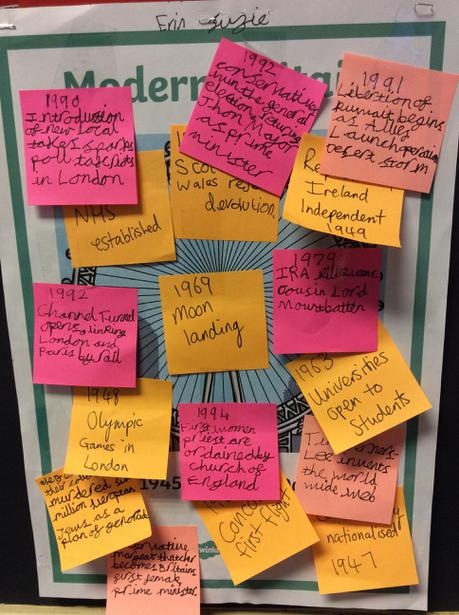 Erin Suzie
Modern
1990
Introduction
of new local
in London
1992
Conservatives
win the general
election, return
Jhon Major
as prime
minister
1991
Liberation of
kuwait begins
as Allies
Launch operation
desert storm
NHS
established
Wales
devolution.
Ireland
Independent
1949
1992
Channel Tunnel
opens, linking
London and
Paris by rail
1969
Moon
landing
1979
IRA kills
cousin Lord
Mountbatten
1963
Universities
open to
students
1948
Olympic
Games in
London
1994
First women
priest are
ordained by
church of
England
Lee invents
the world
wide web
1945
murdered six
million European
Jews as a
plan of genocide
first flight
nationalised
1947
margeat thatcher
becomes Britains
first female
prime minister